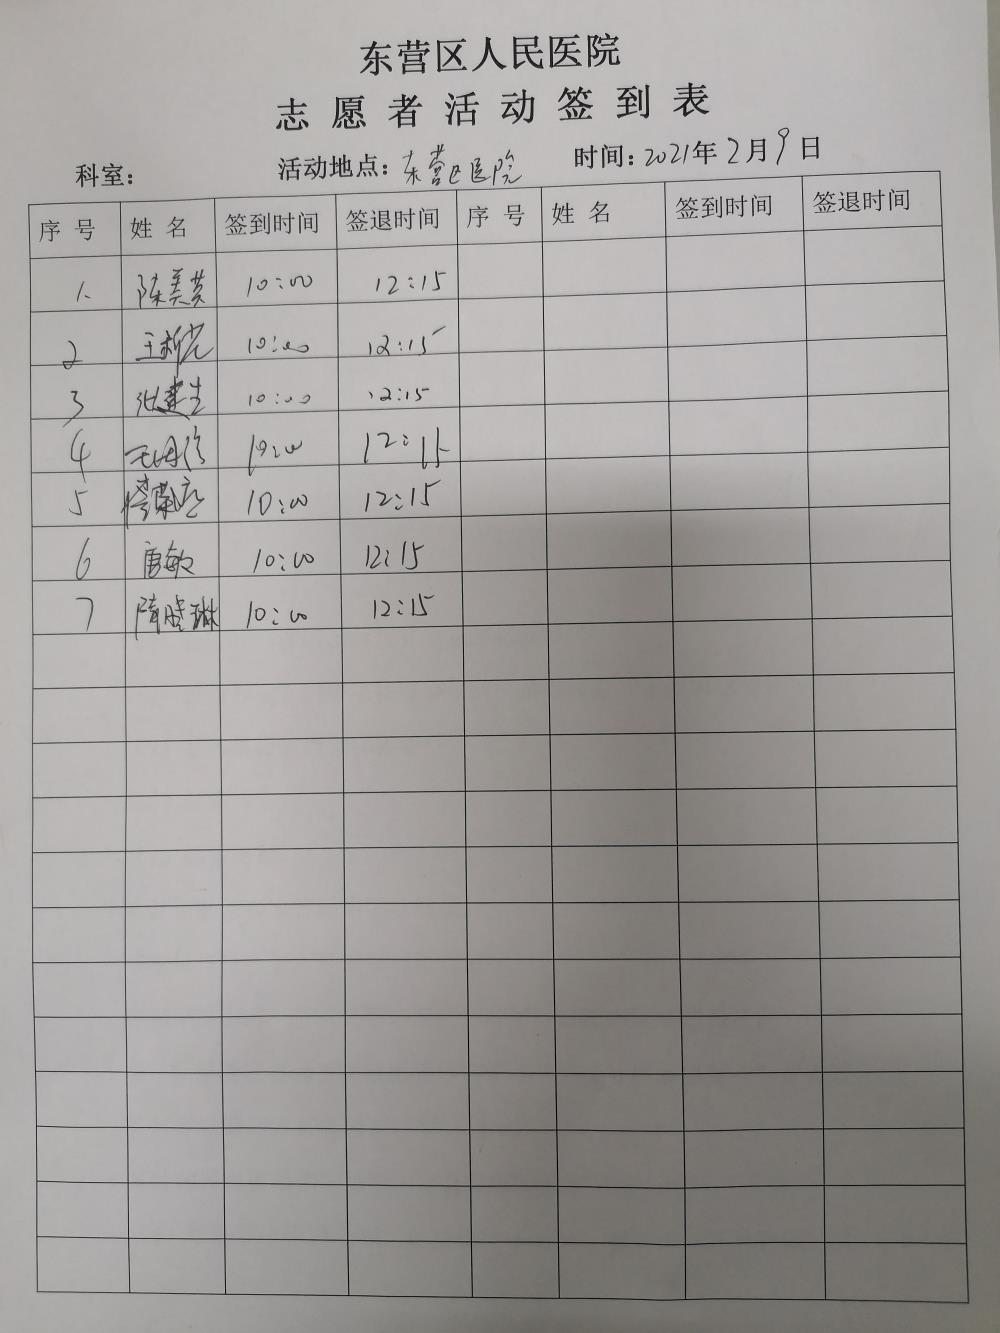 东营区人民医院
志愿者活动签到表
科室： 活动地点：东营区医院 时间：2021年2月9日
序号 姓名 签到时间 签退时间 序号 姓名 签到时间 签退时间
1、 陈美英 10:00 12:15
2 王新光 10:00 12:15
3 张建生 10:00 12:15
4 10:00 12:15
5 10:00 12:15
6 唐敏 10:00 12:15
7 隋晓琳 10:00 12:15